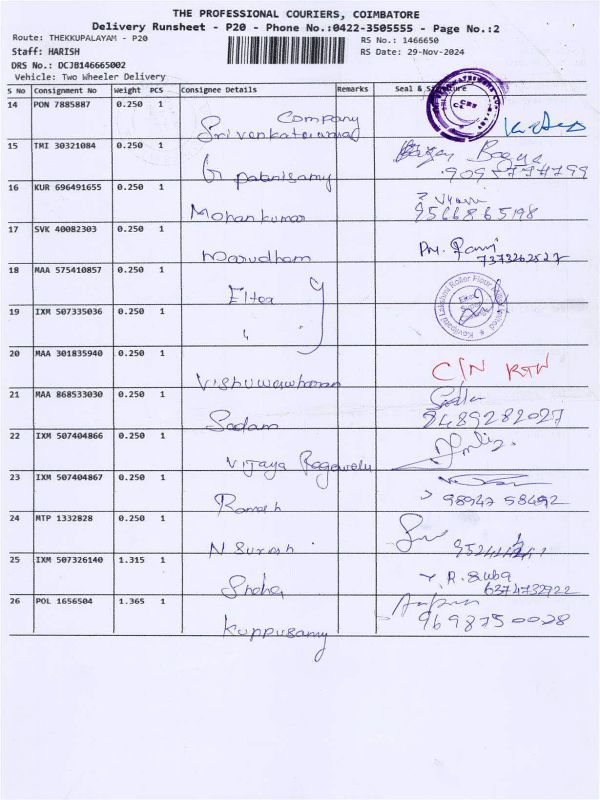 THE PROFESSIONAL COURIERS, COIMBATORE
Delivery Runsheet - P20 - Phone No.:0422-3505555 - Page No.:2
Route: THEKKUPALAYAM - P20 RS No.: 1466650
Staff: HARISH RS Date: 29-Nov-2024
DRS No.: DCJB146665002
Vehicle: Two Wheeler Delivery
S No Consignment No Weight PCS Consignee Details Remarks Seal & Signature
14 PON 7885887 0.250 1 Company
Srivenkateswara
15 TMI 30321084 0.250 1 Bagya
G palanisamy
16 KUR 696491655 0.250 1
Mohankumar 9566865198
17 SVK 40082303 0.250 1
Marudham 7373262527
18 MAA 575410857 0.250 1
Eltea
19 IXM 507335036 0.250 1
"
20 MAA 301835940 0.250 1 C/N RTN
21 MAA 868533030 0.250 1
Sadam 9489282027
22 IXM 507404866 0.250 1
Vijaya
23 IXM 507404867 0.250 1
Ramesh 98947 58492
24 MTP 1332828 0.250 1
N Suresh
25 IXM 507326140 1.315 1 R. Suba
Sneha 6374732922
26 POL 1656504 1.365 1
Kuppusamy 9698750028